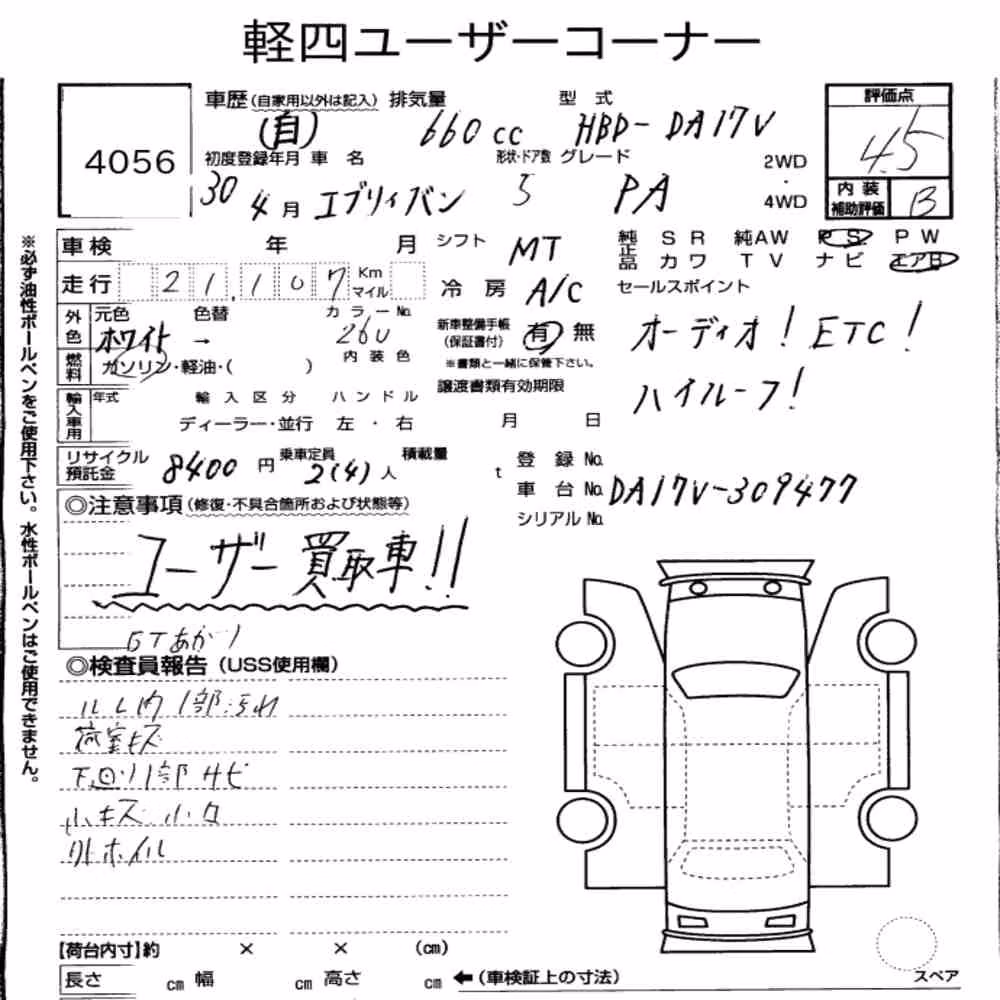 軽四ユーザーコーナー
4056
車歴 (自家用以外は記入) 排気量 型式 評価点
(自) 660 cc HBD-DA17V 4.5
初度登録年月 車名 形状・ドア数 グレード 2WD・4WD 内装補助評価 B
30 4月 エブリィバン 5 PA
車検 年 月 シフト MT 純正品 SR 純AW PS PW
走行 21,107 Km マイル 冷房 A/C カワ TV ナビ エアB
セールスポイント
外色 元色 色替 カラーNo. 新車整備手帳 (保証書付) 有 無 オーディオ! ETC!
ホワイト → 26U
燃料 ガソリン・軽油・( ) 内装色 ※書類と一緒に保管下さい。
譲渡書類有効期限 ハイルーフ!
輸入車用 年式 輸入区分 ハンドル
ディーラー・並行 左・右 月 日
リサイクル預託金 8400円 乗車定員 2(4)人 積載量 t 登録No.
車台No. DA17V-309477
シリアルNo.
◎注意事項 (修復・不具合箇所および状態等)
ユーザー買取車!!
◎検査員報告 (USS使用欄)
荷室キズ
下回り1部サビ
小キズ
【荷台内寸】約 × × (cm)
長さ cm 幅 cm 高さ cm ←(車検証上の寸法)
スペア
※必ず油性ボールペンをご使用下さい。水性ボールペンはご使用できません。